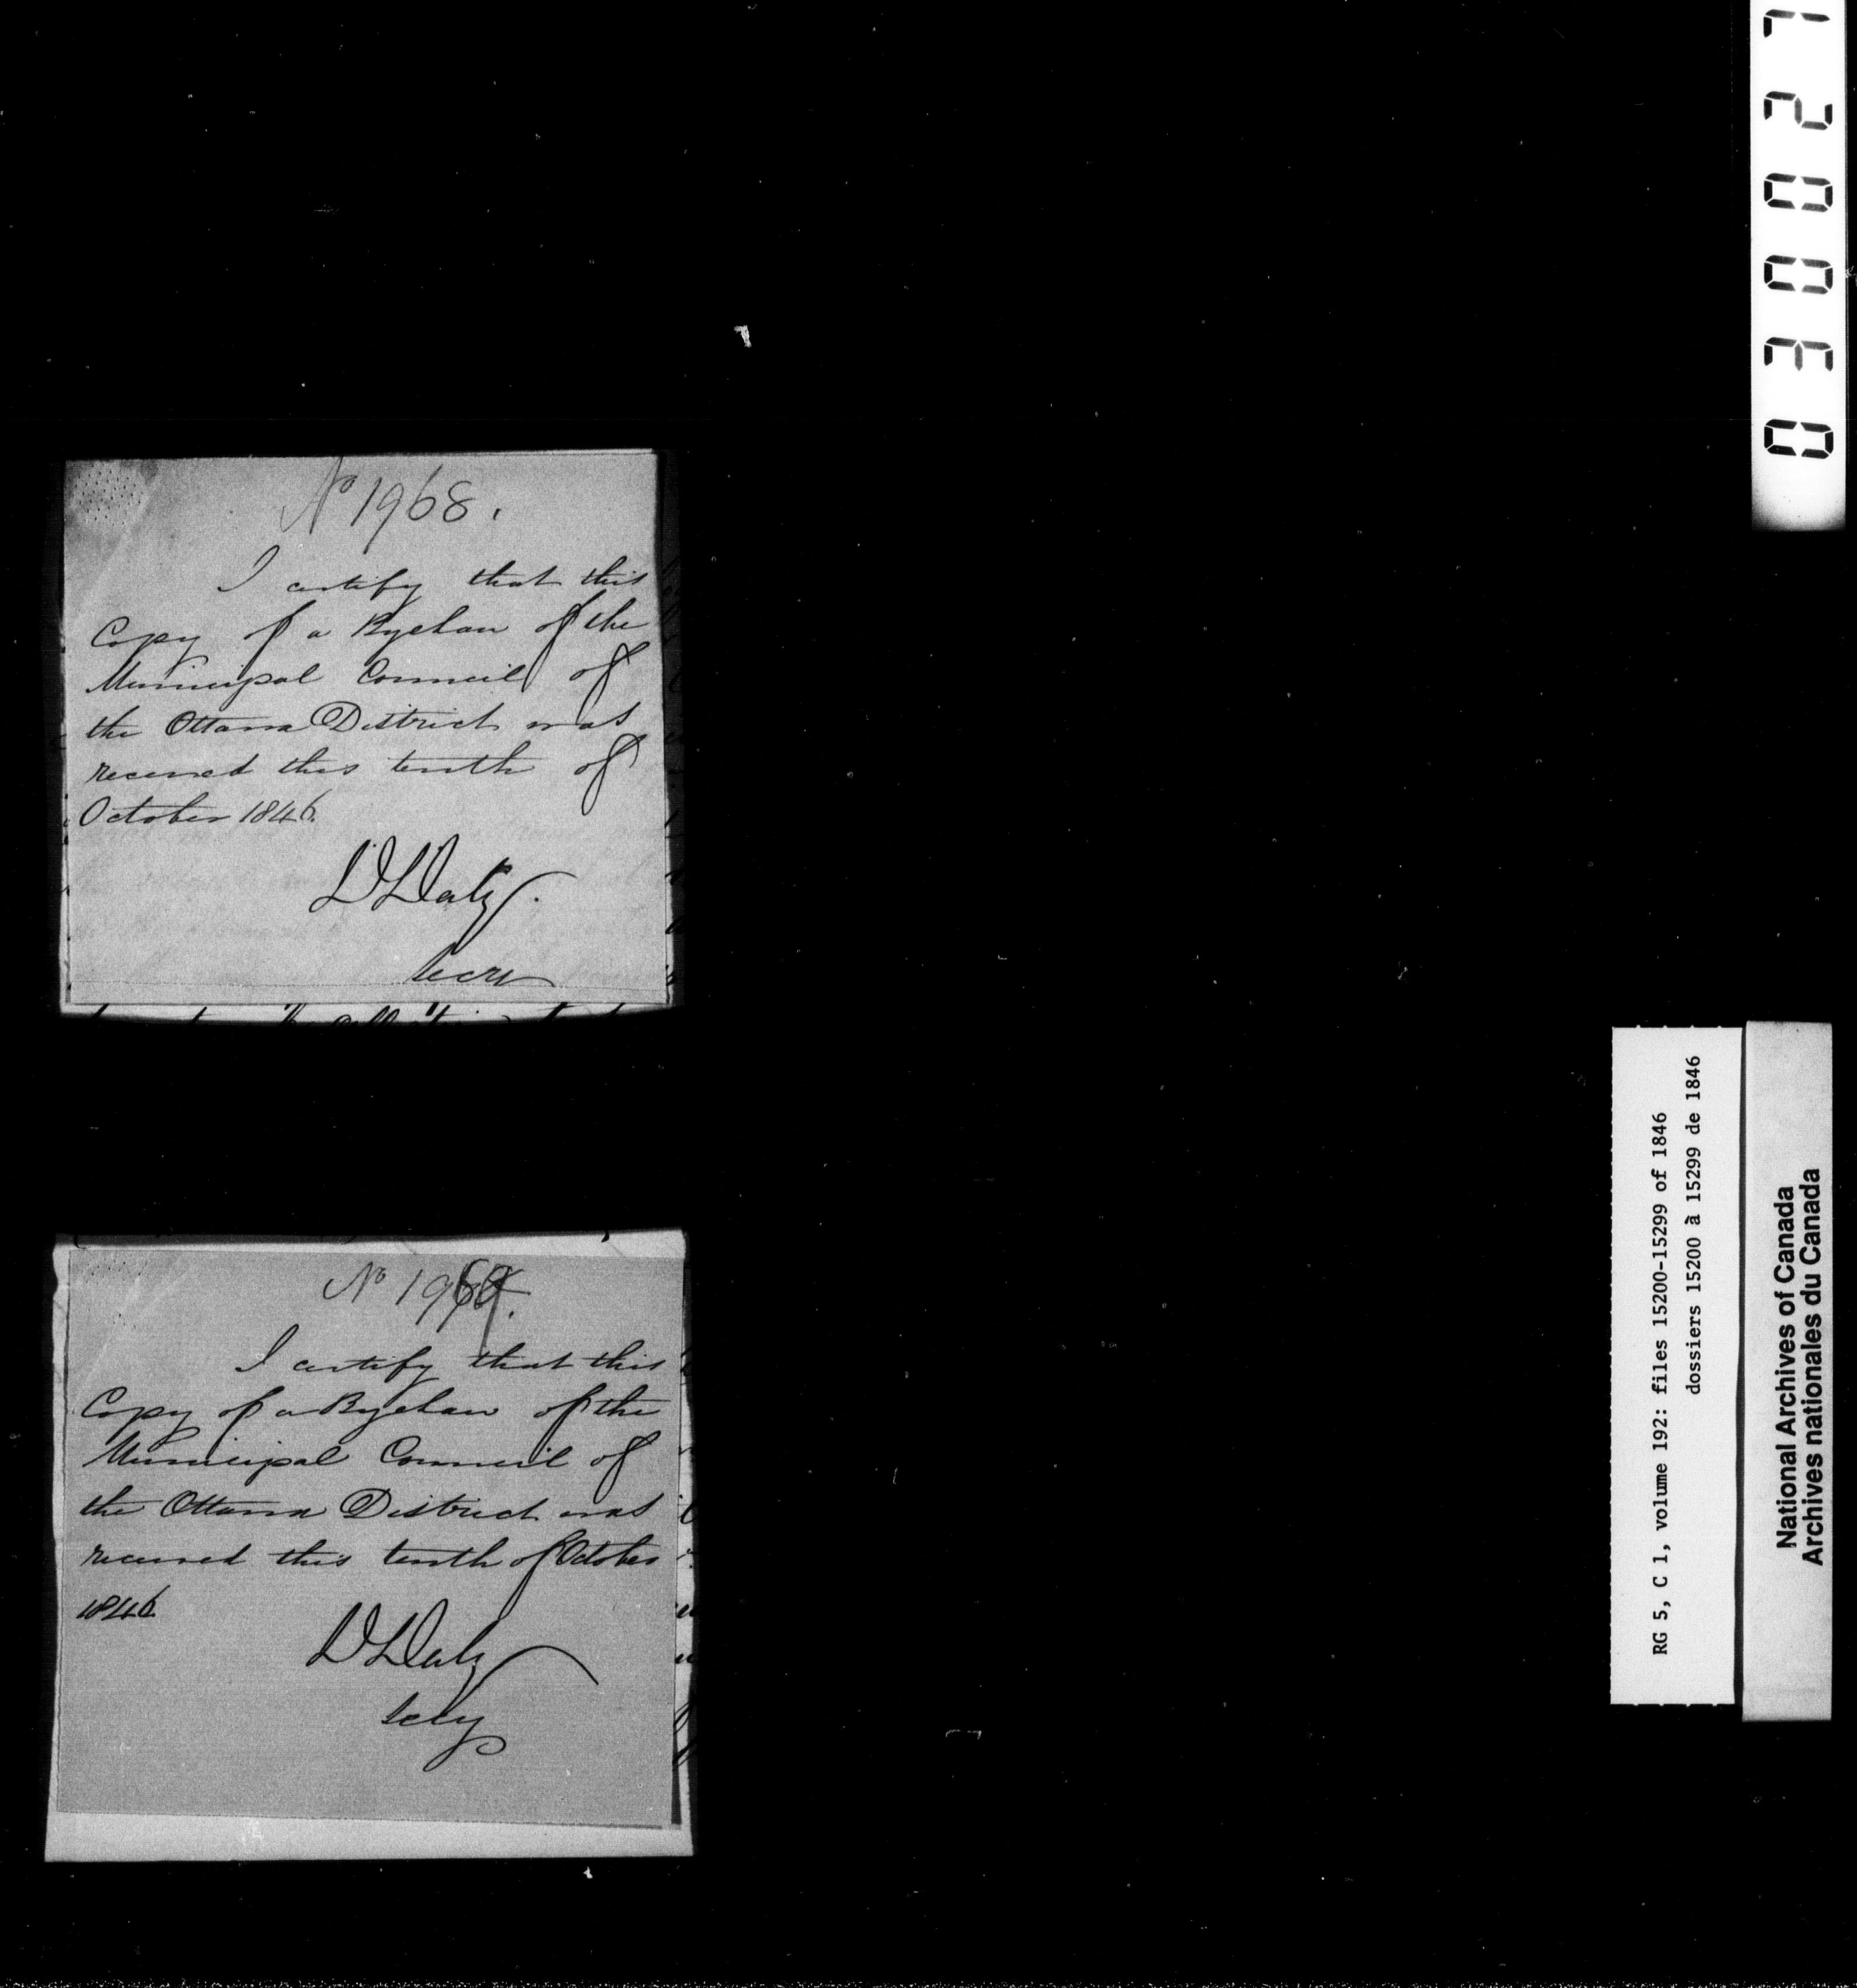 No 1968.
I certify that this
Copy of a Byelaw of the
Municipal Council of
the Ottawa District was
received this tenth of
October 1846.
D Daly.
Secy
No 1969.
I certify that this
Copy of a Byelaw of the
Municipal Council of
the Ottawa District was
received this tenth of October
1846
D Daly
Secy
030027
RG 5, C 1, volume 192: files 15200-15299 of 1846
dossiers 15200 à 15299 de 1846
National Archives of Canada
Archives nationales du Canada